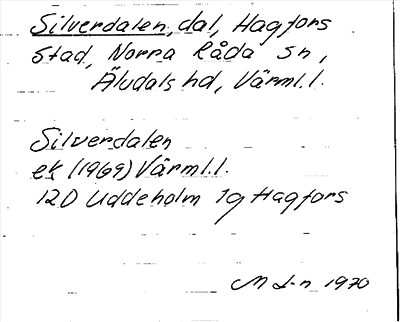 Silverdalen, dal, Hagfors
stad, Norra Råda sn,
Älvdals hd, Värml.l.
Silverdalen
ek (1969) Värml.l.
12D Uddeholm 1g Hagfors
M J-n 1970